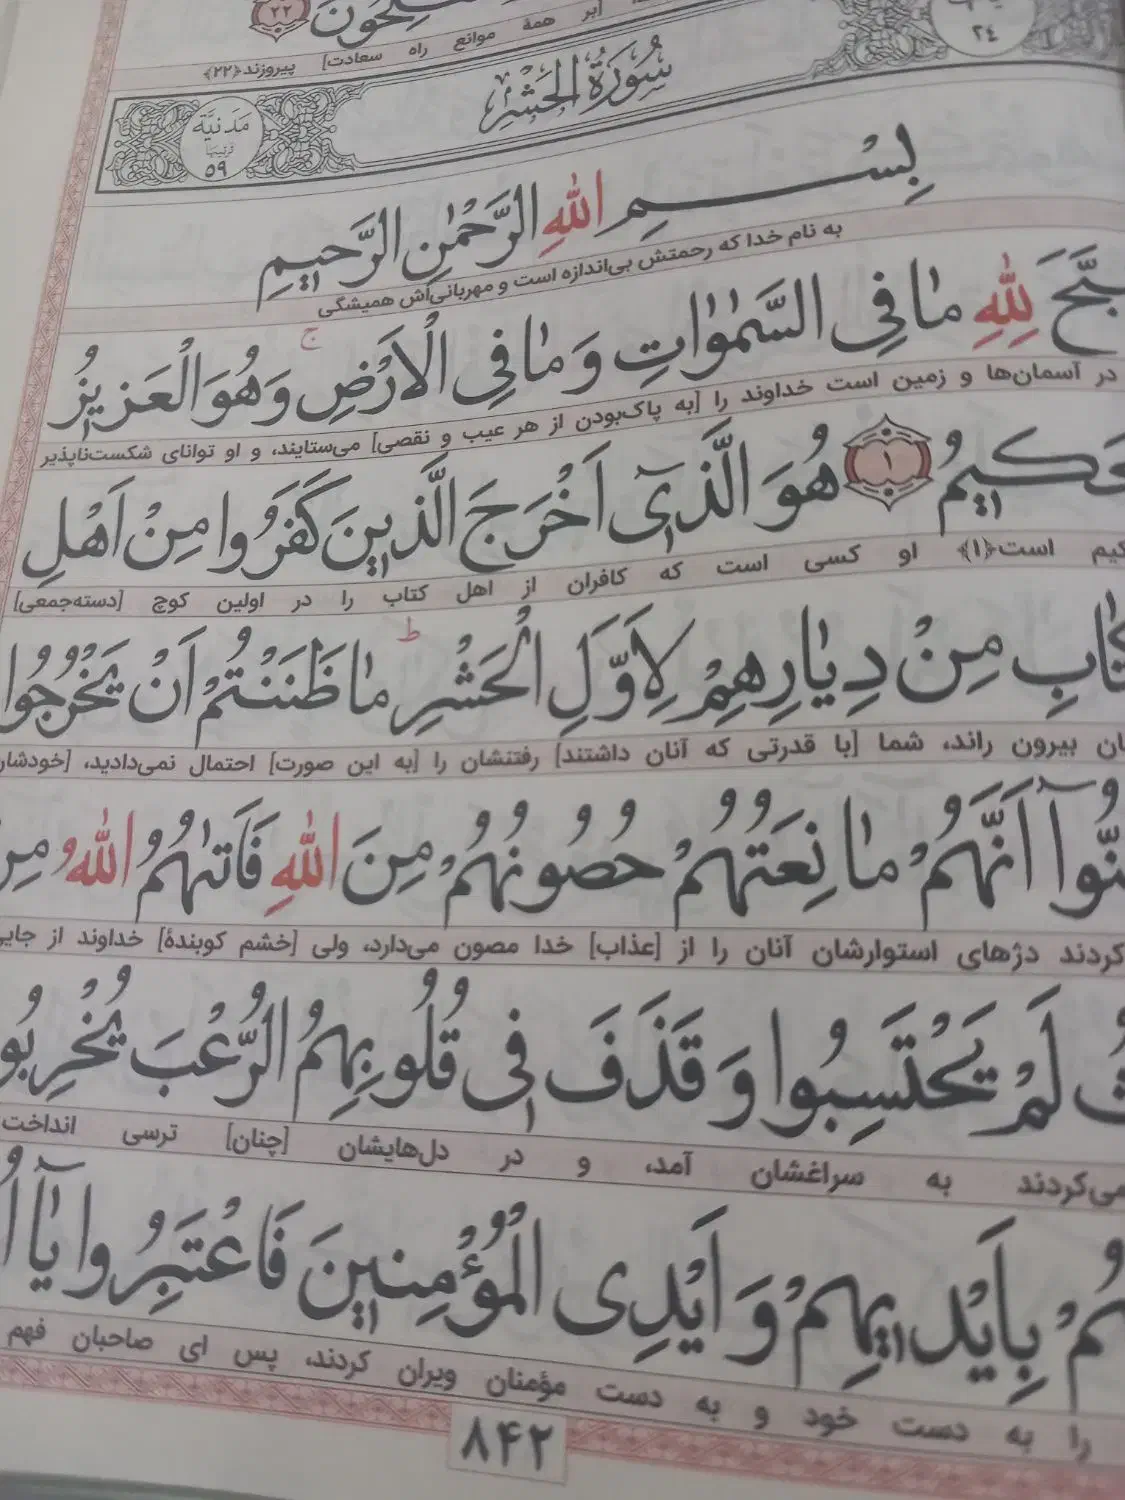 ۲۲ ـلِحُونَ
[بر همهٔ موانع راه سعادت] پیروزند﴿۲۲﴾
۲۴ سُورَةُ الْحَشْرِ مَدَنِيَّة ۵۹
بِسْمِ اللّٰهِ الرَّحْمٰنِ الرَّحِيمِ
به نام خدا که رحمتش بی‌اندازه است و مهربانی‌اش همیشگی
ـبَّحَ لِلّٰهِ مٰا فِي السَّمٰوٰاتِ وَ مٰا فِي الْاَرْضِ وَ هُوَ الْعَزِيزُ
در آسمان‌ها و زمین است خداوند را [به پاک‌بودن از هر عیب و نقصی] می‌ستایند، و او توانای شکست‌ناپذیر
ـحَكِيمُ ۱ هُوَ الَّذِيٓ اَخْرَجَ الَّذِينَ كَفَرُوا مِنْ اَهْلِ
ـکیم است﴿۱﴾ او کسی است که کافران از اهل کتاب را در اولین کوچ [دسته‌جمعی]
ـتٰابِ مِنْ دِيٰارِهِمْ لِاَوَّلِ الْحَشْرِ ط مٰا ظَنَنْتُمْ اَنْ يَخْرُجُوا
ـان بیرون راند، شما [با قدرتی که آنان داشتند] رفتنشان را [به این صورت] احتمال نمی‌دادید، [خودشان
ـنُّوٓا اَنَّهُمْ مٰا نِعَتُهُمْ حُصُونُهُمْ مِنَ اللّٰهِ فَاَتٰىهُمُ اللّٰهُ مِنْ
کردند دژهای استوارشان آنان را از [عذاب] خدا مصون می‌دارد، ولی [خشم کوبندهٔ] خداوند از جایی
ـثُ لَمْ يَحْتَسِبُوا وَ قَذَفَ فِي قُلُوبِهِمُ الرُّعْبَ يُخْرِبُو
می‌کردند به سراغشان آمد، و در دل‌هایشان [چنان] ترسی انداخت
ـهُمْ بِاَيْدِيهِمْ وَ اَيْدِي الْمُؤْمِنِينَ فَاعْتَبِرُوا يٰٓا اُ
را به دست خود و به دست مؤمنان ویران کردند، پس ای صاحبان فهم
۸۴۲